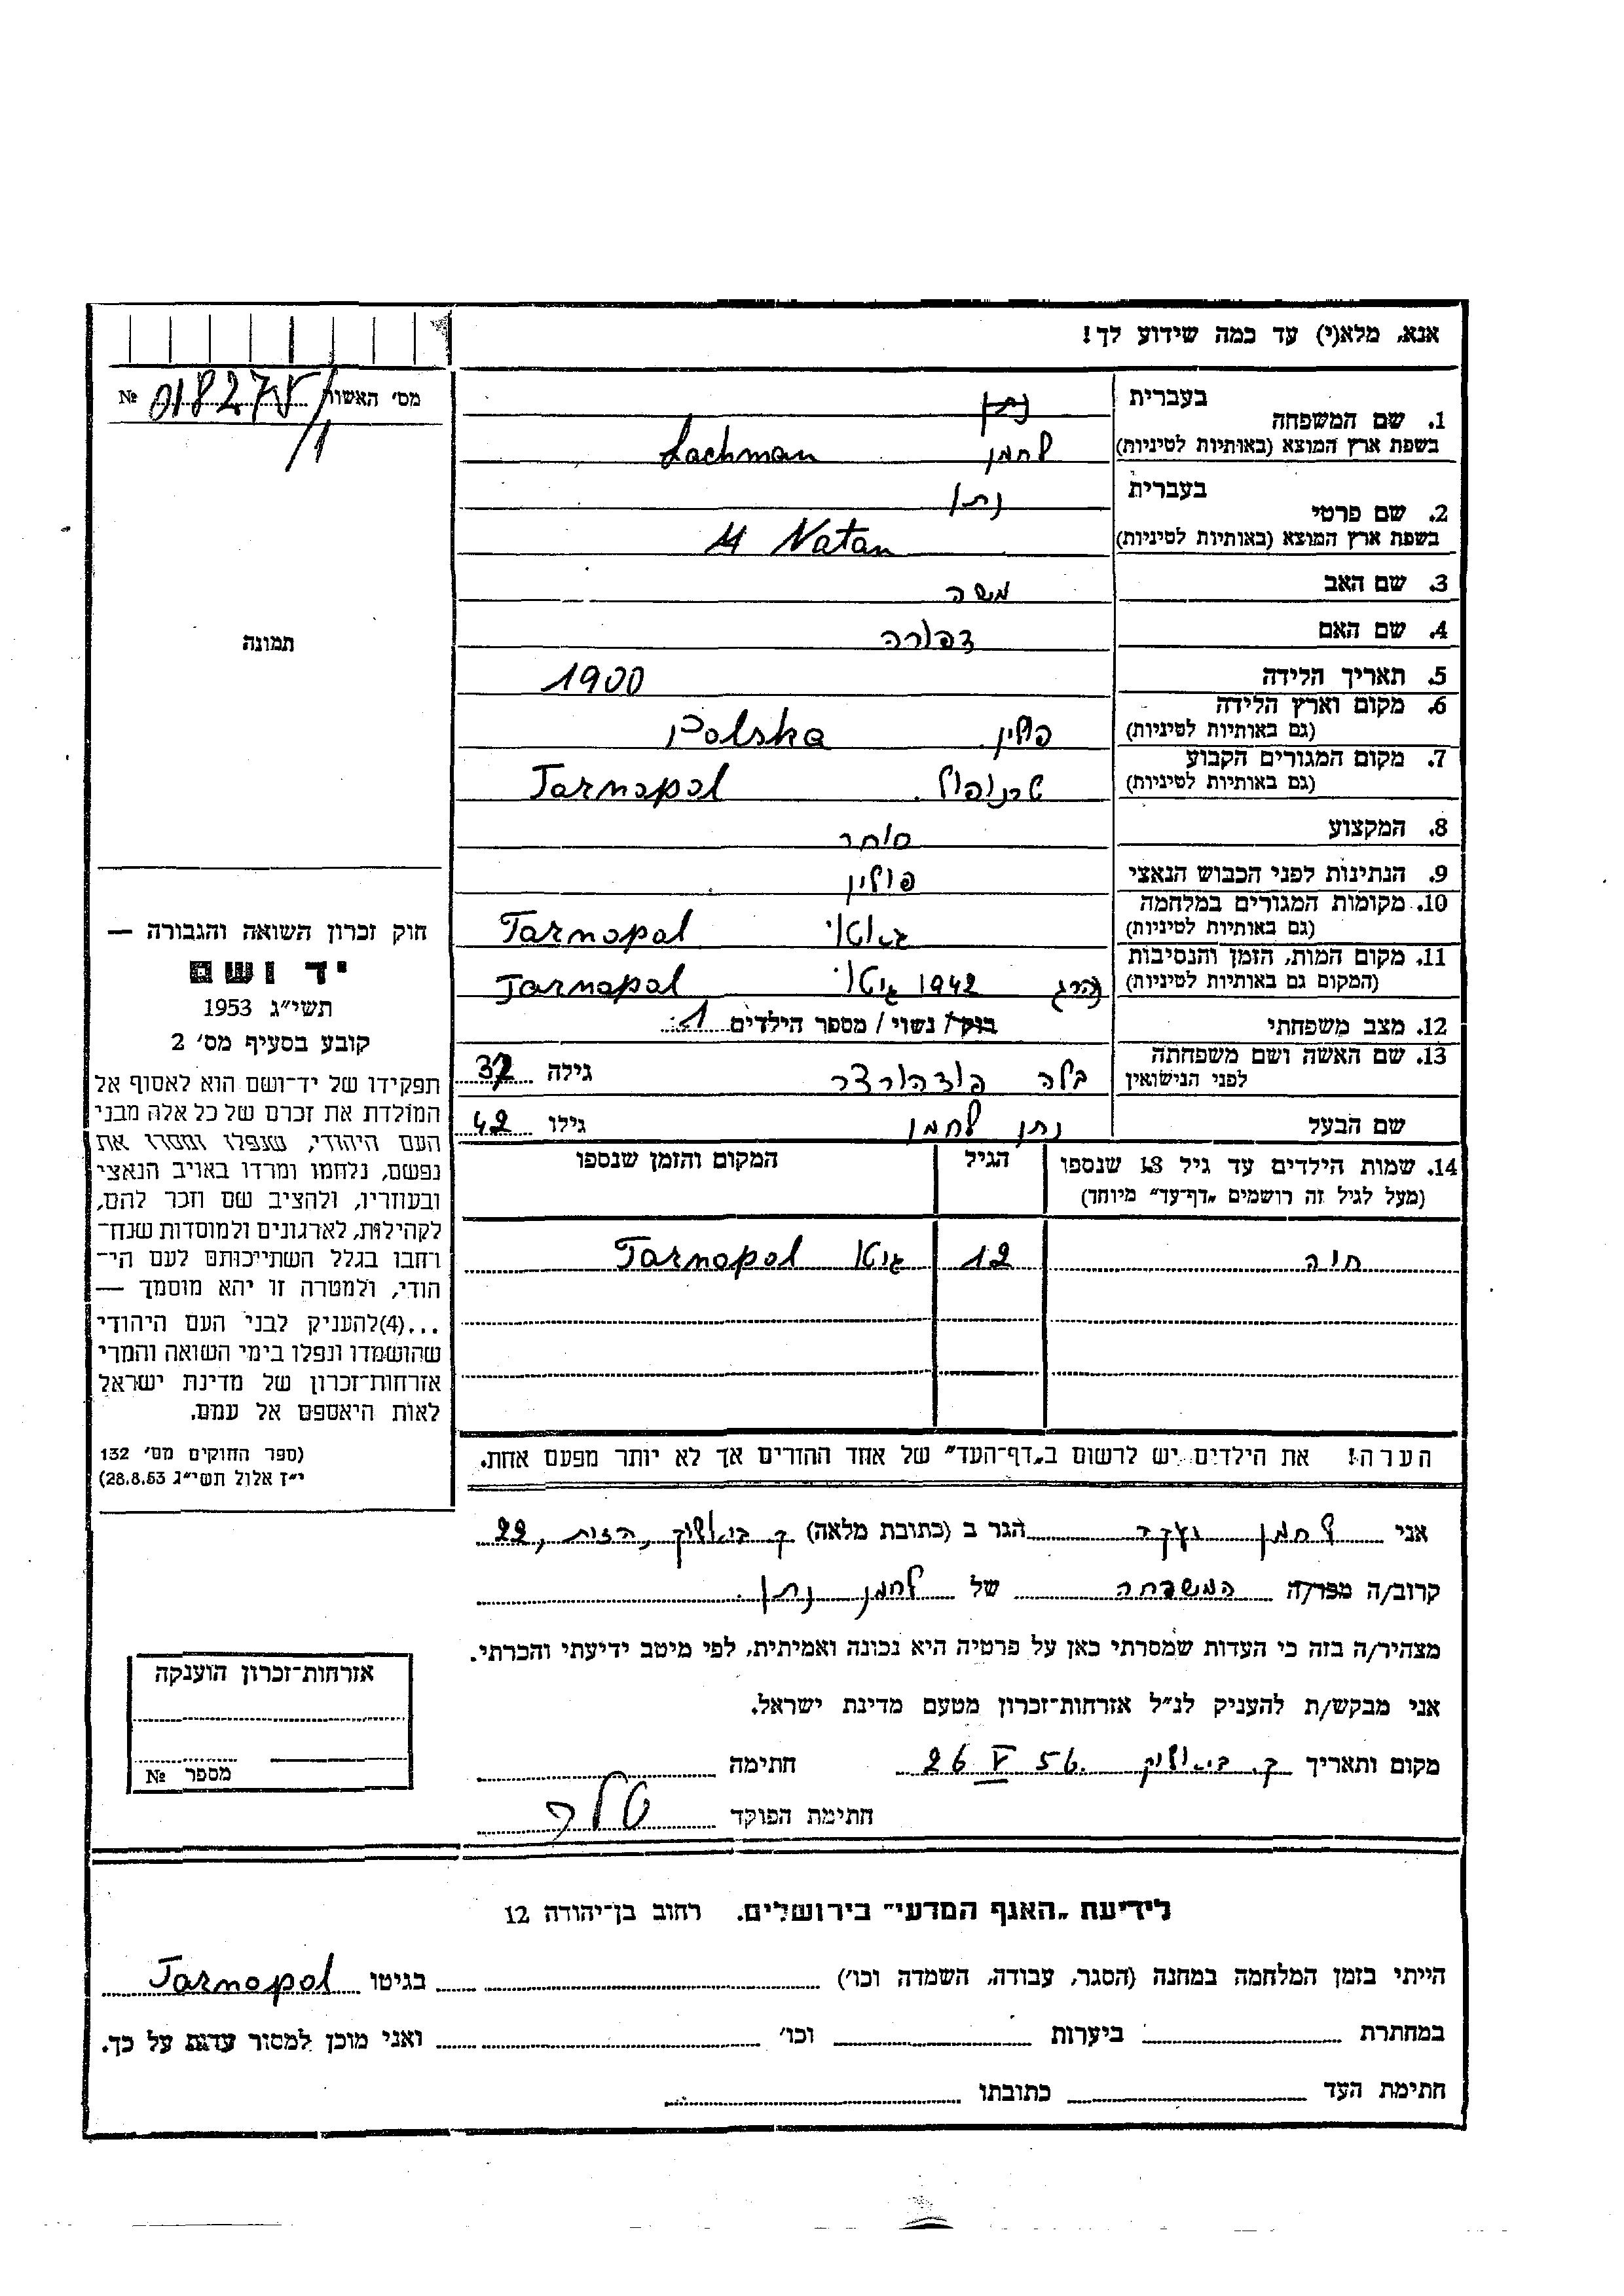 אנא, מלא(י) עד כמה שידוע לך!
מס' האשור № 018275/1
1. שם המשפחה
בעברית נתן
בשפת ארץ המוצא (באותיות לטיניות) לחמן Lachman
2. שם פרטי
בעברית נתן
בשפת ארץ המוצא (באותיות לטיניות) Natan
3. שם האב משה
4. שם האם צפורה
5. תאריך הלידה 1900
6. מקום וארץ הלידה
(גם באותיות לטיניות) פולין. Polska
7. מקום המגורים הקבוע
(גם באותיות לטיניות) טרנופול. Tarnopol
8. המקצוע סוחר
9. הנתינות לפני הכבוש הנאצי פולין
10. מקומות המגורים במלחמה
(גם באותיות לטיניות) Tarnopol
11. מקום המות, הזמן והנסיבות
(המקום גם באותיות לטיניות) נהרג 1942 גיטו Tarnopol
12. מצב משפחתי רוק/ נשוי/ מספר הילדים 1
13. שם האשה ושם משפחתה
לפני הנישואין בלה גילה 37
שם הבעל נתן לחמן גילו 42
14. שמות הילדים עד גיל 18 שנספו הגיל המקום והזמן שנספו
(מעל לגיל זה רושמים „דף־עד" מיוחד)
חיה 12 גיטו Tarnopol
הערה! את הילדים יש לרשום ב„דף־העד" של אחד ההורים אך לא יותר מפעם אחת.
תמונה
חוק זכרון השואה והגבורה —
יד ושם
תשי״ג 1953
קובע בסעיף מס' 2
תפקידו של יד־ושם הוא לאסוף אל
המולדת את זכרם של כל אלה מבני
העם היהודי, שנפלו ומסרו את
נפשם, נלחמו ומרדו באויב הנאצי
ובעוזריו, ולהציב שם וזכר להם,
לקהילות, לארגונים ולמוסדות שנח־
רבו בגלל השתייכותם לעם הי־
הודי, ולמטרה זו יהא מוסמך —
...(4)להעניק לבני העם היהודי
שהושמדו ונפלו בימי השואה והמרי
אזרחות־זכרון של מדינת ישראל
לאות היאספם אל עמם.
(ספר החוקים מס' 132
י״ז אלול תשי״ג 28.8.53)
אני לחמן הגר ב (כתובת מלאה) ק. ביאליק, 22
קרוב/ה מכר/ה המשפחה של לחמן נתן.
מצהיר/ה בזה כי העדות שמסרתי כאן על פרטיה היא נכונה ואמיתית, לפי מיטב ידיעתי והכרתי.
אני מבקש/ת להעניק לנ״ל אזרחות־זכרון מטעם מדינת ישראל.
מקום ותאריך ק. ביאליק 26 V 56. חתימה
חתימת הפוקד
אזרחות־זכרון הוענקה
מספר №
לידיעת „האגף המדעי" בירושלים. רחוב בן־יהודה 12
הייתי בזמן המלחמה במחנה (הסגר, עבודה, השמדה וכו') בגיטו Tarnopol
במחתרת ביערות וכו' ואני מוכן למסור עדות על כך.
חתימת העד כתובתו